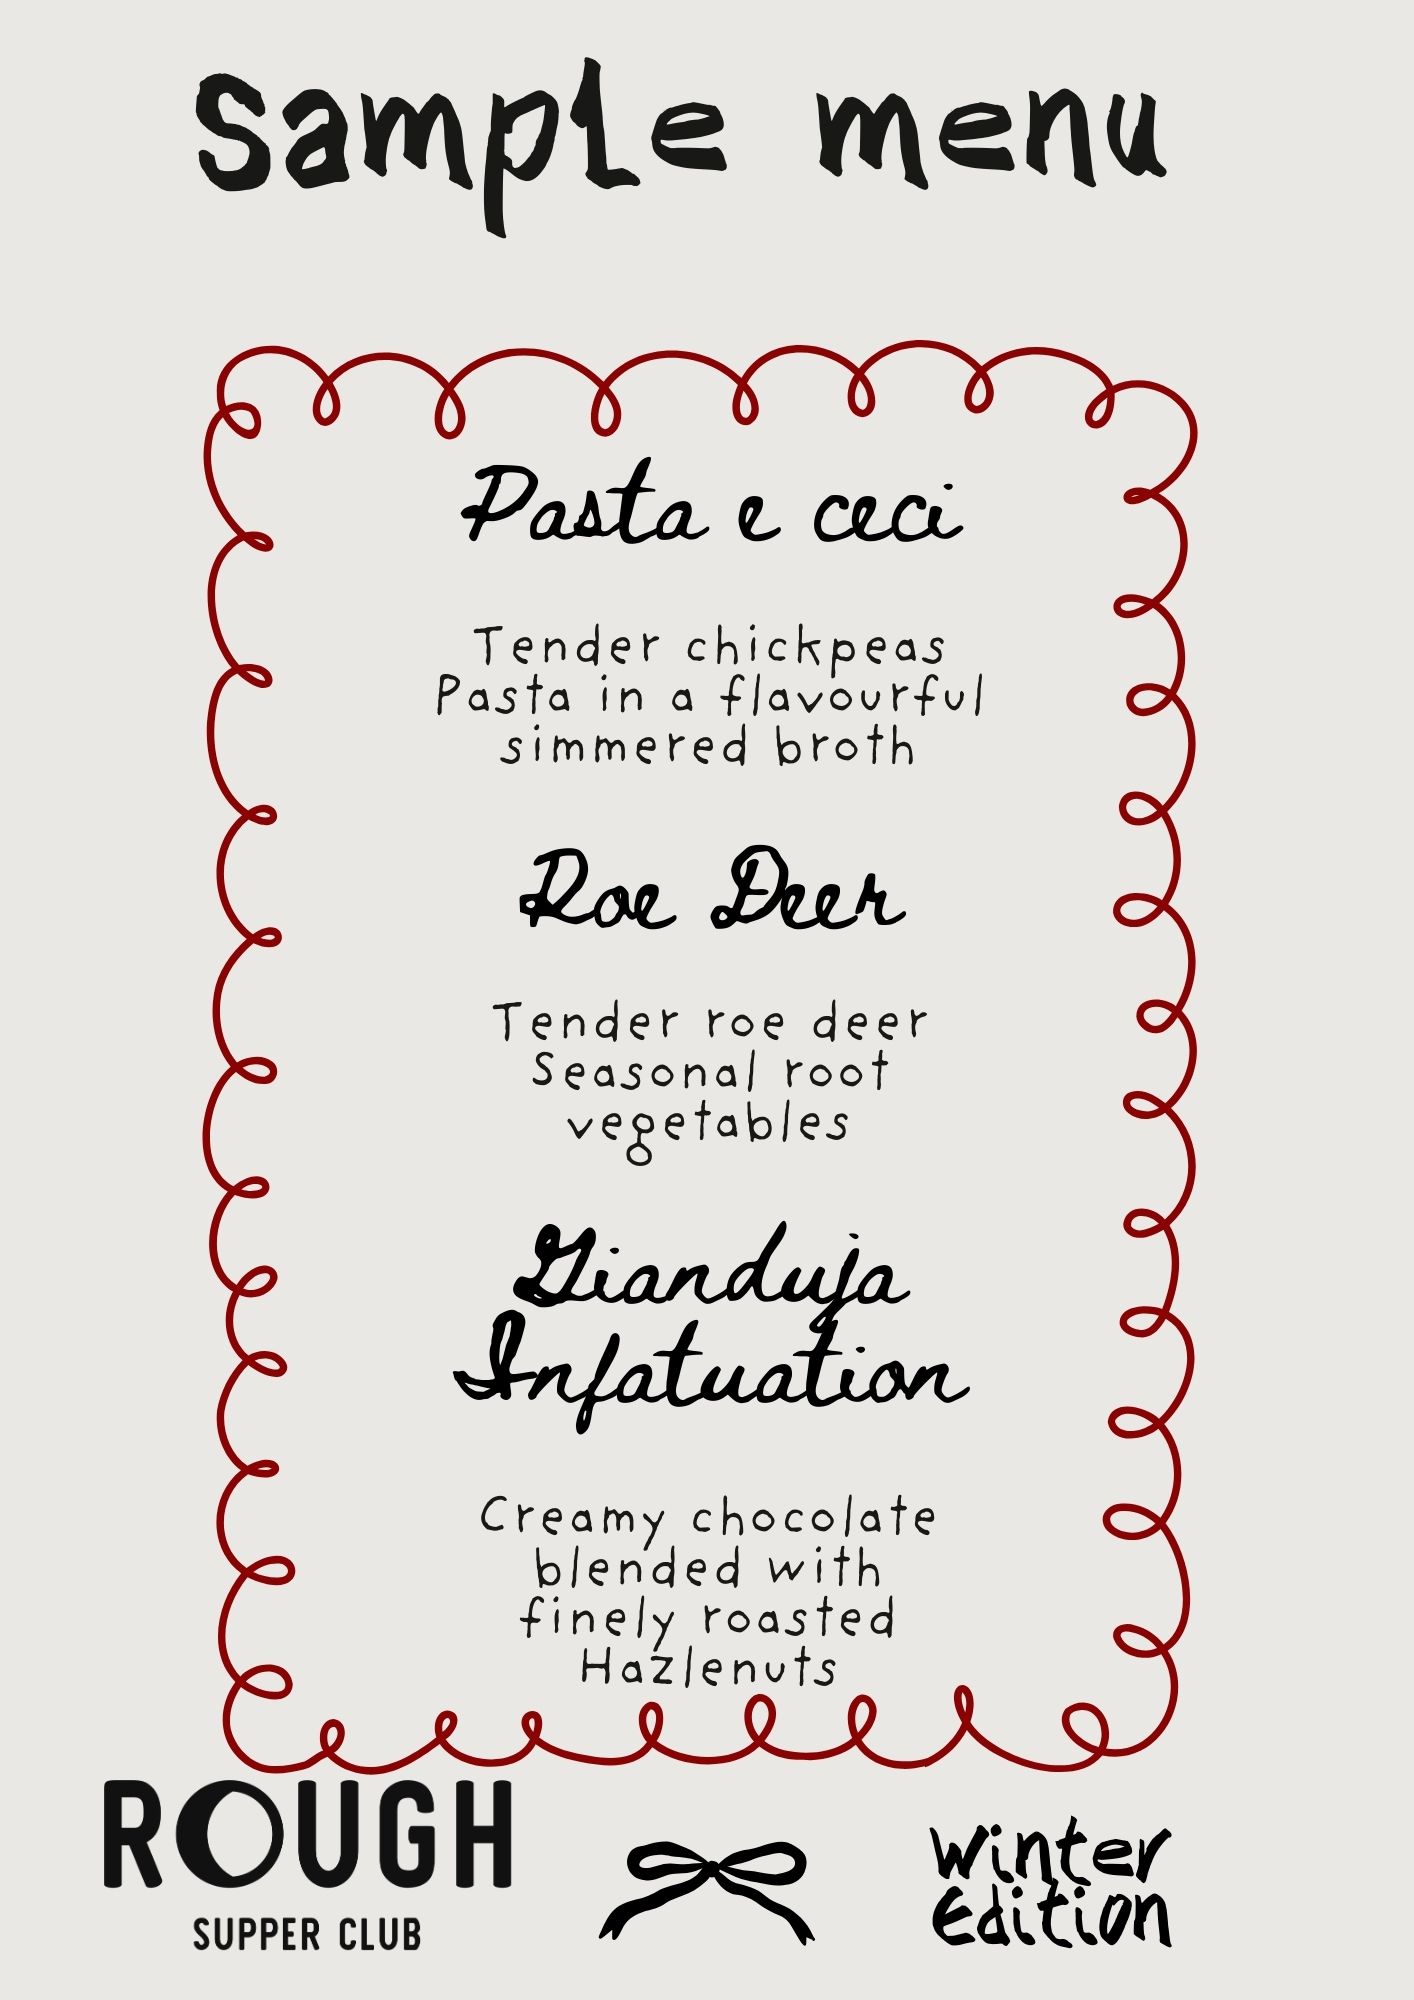 Sample menu
Pasta e ceci
Tender chickpeas
Pasta in a flavourful
simmered broth
Roe Deer
Tender roe deer
Seasonal root
vegetables
Gianduja
Infatuation
Creamy chocolate
blended with
finely roasted
Hazlenuts
ROUGH
SUPPER CLUB
winter
edition